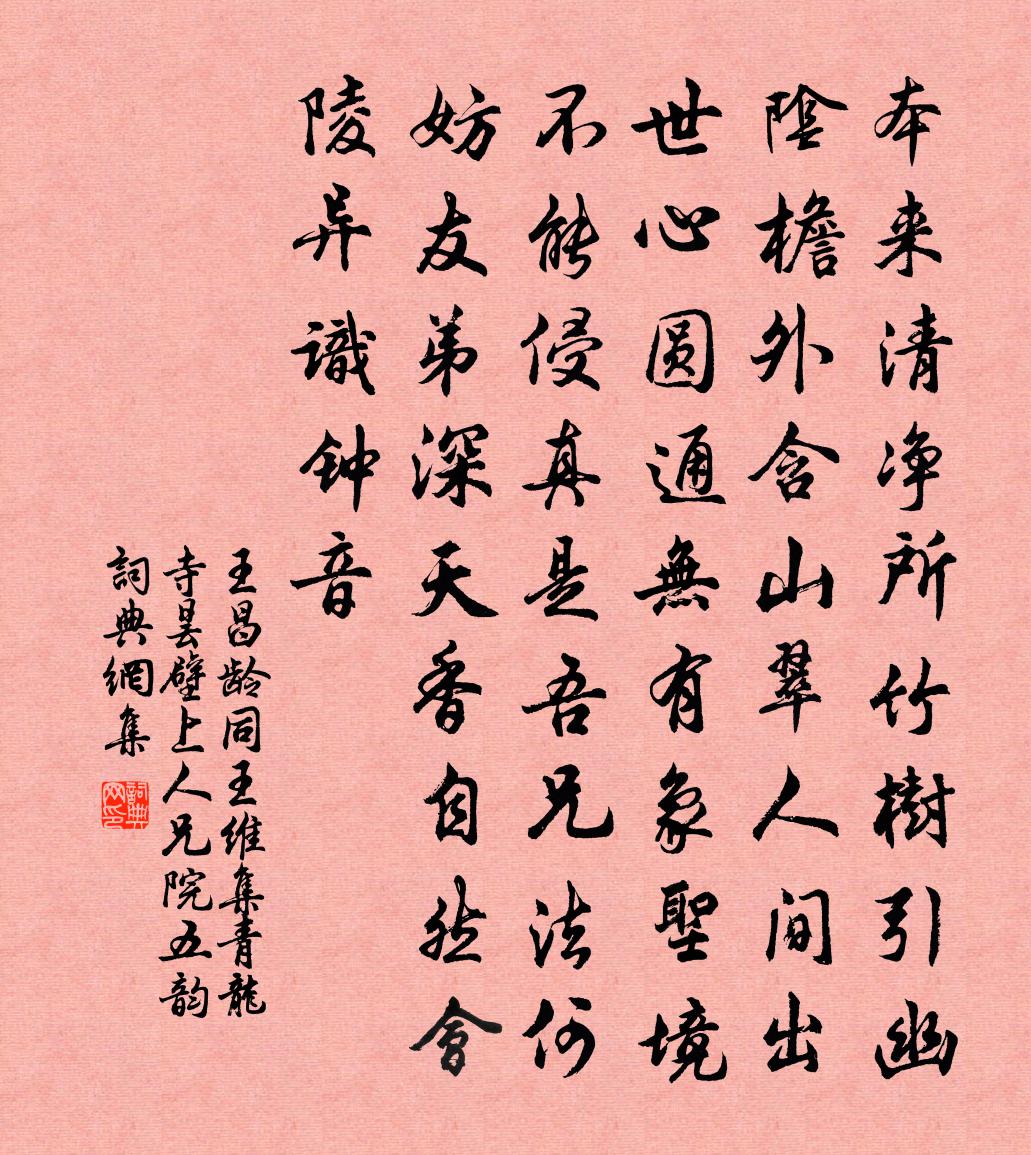 本来清净所竹樹引幽
陰檐外含山翠人间出
世心圆通無有象聖境
不能侵真是吾兄法何
妨友弟深天香自然會
陵异識钟音
王昌龄同王维集青龍
寺昙壁上人兄院五韵
詞典網集
詞典
网印